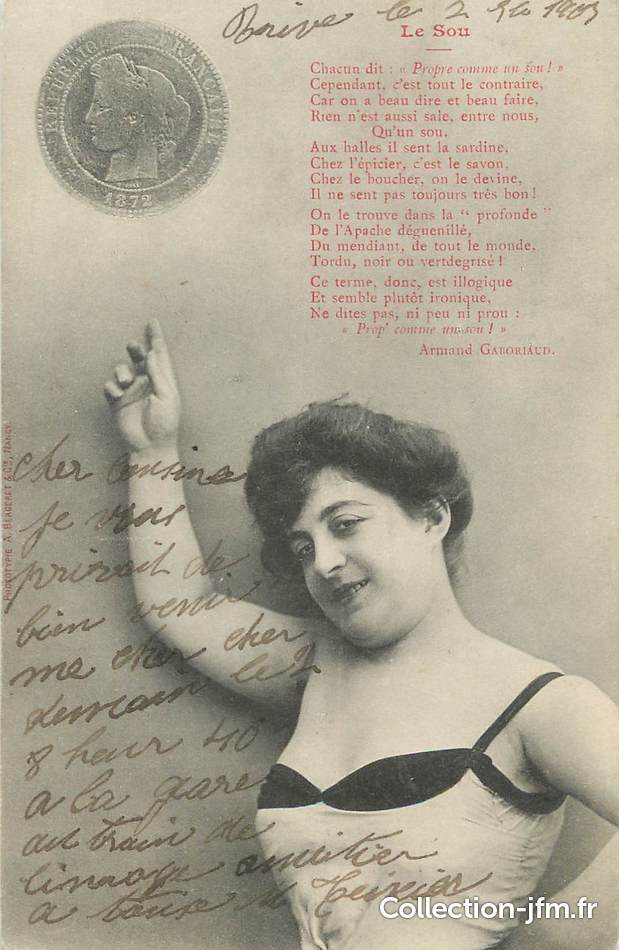 Brive le 2 1903
RÉPUBLIQUE FRANÇAISE
1872
Le Sou
Chacun dit : « Propre comme un sou ! »
Cependant, c'est tout le contraire,
Car on a beau dire et beau faire,
Rien n'est aussi sale, entre nous,
Qu'un sou.
Aux halles il sent la sardine,
Chez l'épicier, c'est le savon,
Chez le boucher, on le devine,
Il ne sent pas toujours très bon !
On le trouve dans la “ profonde ”
De l'Apache déguenillé,
Du mendiant, de tout le monde,
Tordu, noir ou vertdegrisé !
Ce terme, donc, est illogique
Et semble plutôt ironique,
Ne dites pas, ni peu ni prou :
« Prop' comme un sou ! »
Armand GABORIAUD.
PHOTOTYPIE A. BERGERET & Cie, NANCY.
cher cousine
je vous
prirait de
bien venir
me cher cher
demain le 2
8 heur 40
a la gare
au train de
limoge amitier
a tous
Collection-jfm.fr